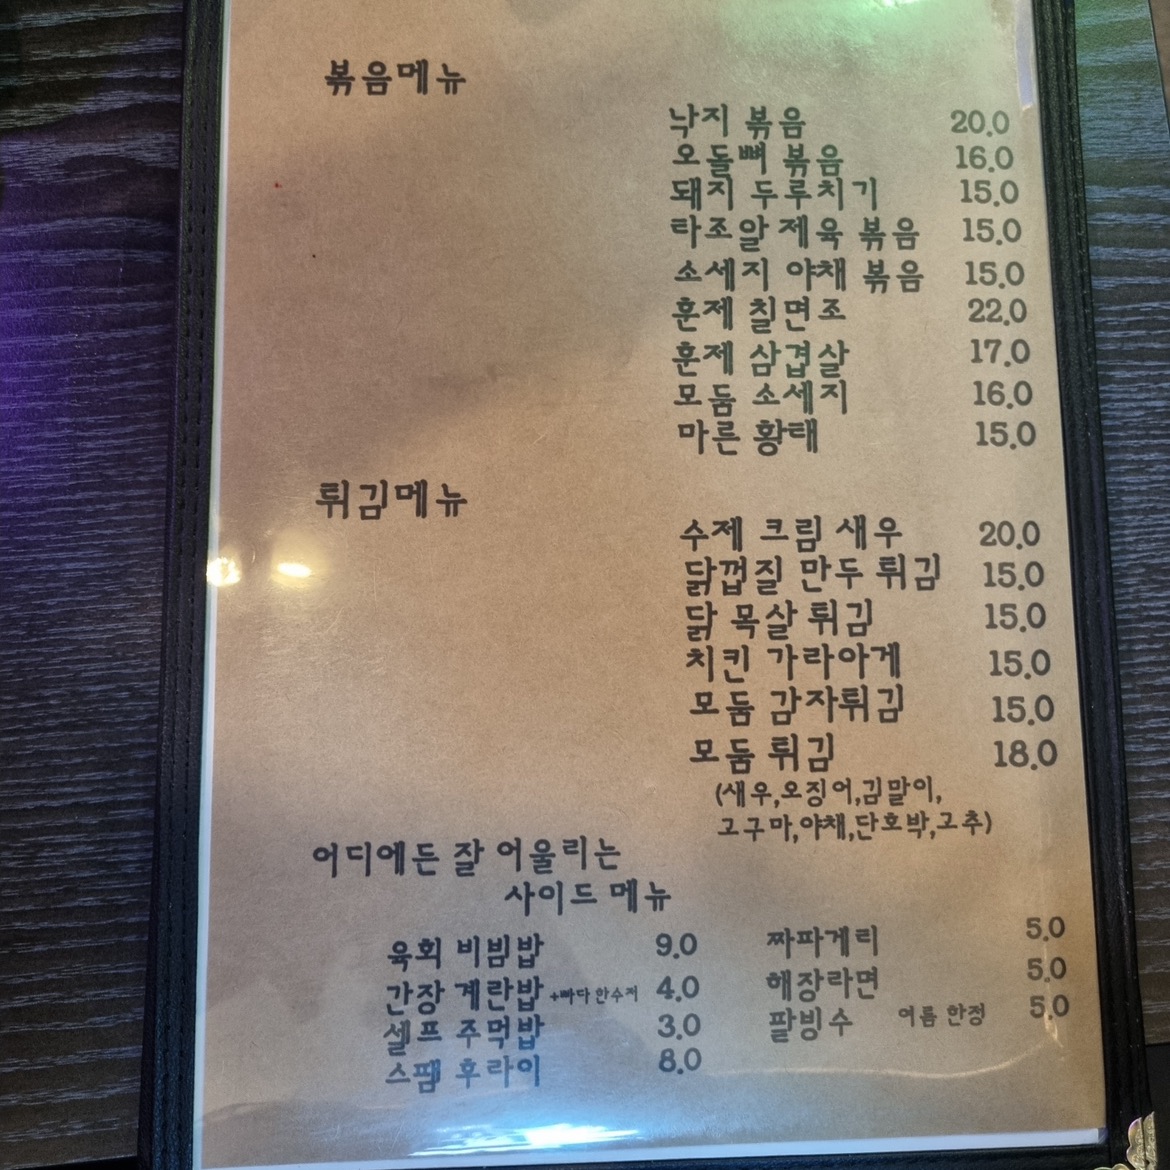 볶음메뉴
낙지 볶음 20.0
오돌뼈 볶음 16.0
돼지 두루치기 15.0
타조알 제육 볶음 15.0
소세지 야채 볶음 15.0
훈제 칠면조 22.0
훈제 삼겹살 17.0
모둠 소세지 16.0
마른 황태 15.0
튀김메뉴
수제 크림 새우 20.0
닭껍질 만두 튀김 15.0
닭 목살 튀김 15.0
치킨 가라아게 15.0
모둠 감자튀김 15.0
모둠 튀김 18.0
(새우,오징어,김말이,
고구마,야채,단호박,고추)
어디에든 잘 어울리는
사이드 메뉴
육회 비빔밥 9.0
간장 계란밥 +빠다 한수저 4.0
셀프 주먹밥 3.0
스팸 후라이 8.0
짜파게리 5.0
해장라면 5.0
팥빙수 여름 한정 5.0